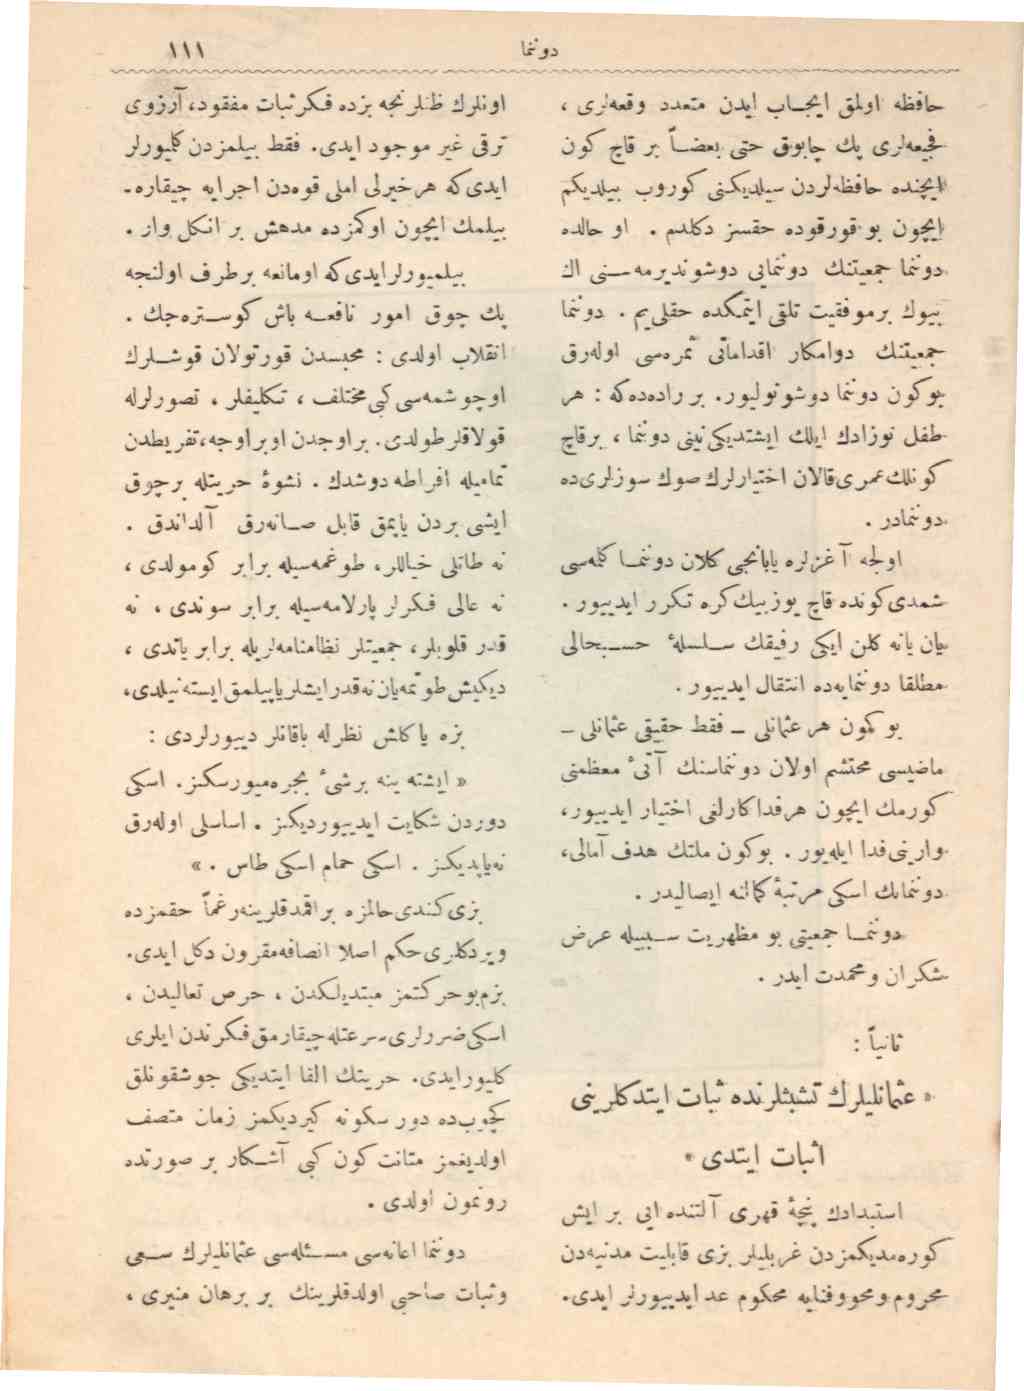 دوننما
١١١
حافظه اولمق ایجاب ایدن متعدد وقعه‌لری ،
فجیعه‌لری پك چابوق حتی بعضاً بر قاچ كون
ایچنده حافظه‌لردن سیلدیكنی كوروب بیلدیكم
ایچون بو قورقوده حقسز دكلدم . او حالده
دوننما جمعیتنك دوننمایی دوشوندیرمه‌سنی اك
بیوك برموفقیت تلقی ایتمكده حقلی‌یم . دوننما
جمعیتنك دوامكار اقداماتی ثمره‌سی اوله‌رق
بوكون دوننما دوشونولیور. بر راده‌ده‌كه : هر
طفل نوزادك ایلك ایشتدیكی نینی دوننما ، برقاچ
كونلك عمری قالان اختیارلرك صوك سوزلری‌ده
دوننمادر .
اولجه آغزلره یابانجی كلان دوننما كله‌سی
شمدی كونده قاچ یوز بیك كره تكرر ایدییور .
یان یانه كلن ایكی رفیقك سلسلهٔ حسبحالی
مطلقا دوننمایه‌ده انتقال ایدییور .
بو كون هر عثمانلی – فقط حقیقی عثمانلی –
ماضیسی محتشم اولان دوننماسنك آتیٔ معظمنی
كورمك ایچون هرفداكارلغی اختیار ایدییور،
وارینی فدا ایله‌یور . بوكون ملتك هدف آمالی،
دوننمانك اسكی مرتبهٔ كمالنه ایصالیدر .
دوننما جمعیتی بو مظهریت سببیله عرض
شكران و محمدت ایدر .
ثانیاً :
« عثمانلیلرك تشبثلرنده ثبات ایتدكلرینی
اثبات ایتدی »
استبدادك پنچهٔ قهری آلتنده ایی بر ایش
كوره‌مدیكمزدن غربلیلر بزی قابلیت مدنیه‌دن
محروم و محو و فنایه محكوم عد ایدییورلر ایدی.
اونلرك ظنلرنجه بزده فكر ثبات مفقود، آرزوی
ترقی غیر موجود ایدی. فقط بیلمزدن كلیورلر
ایدی كه هر خیرلی املی قوه‌دن اجرایه چیقاره‌ـ
بیلمك ایچون اوكمزده مدهش بر انكل وار .
بیلمیورلرایدی كه اومانعه برطرف اولنجه
پك چوق امور نافعه باش كوستره‌جك .
انقلاب اولدی : محبسدن قورتولان قوشلرك
اوچوشمه‌سی كبی مختلف ، تكلیفلر ، تصورلرله
قولاقلر طولدی. براوجدن اوبراوجه، تفریطدن
تمامیله افراطه دوشدك . نشوهٔ حریتله برچوق
ایشی بردن یاپمق قابل صانه‌رق آلداندق .
نه طاتلی خیاللر، طوغمه‌سیله برابر كومولدی ،
نه عالی فكرلر پارلامه‌سیله برابر سوندی ، نه
قدر قلوبلر، جمعیتلر نظامنامه‌لریله برابر یاتدی ،
دیكیش طوتمه‌یان نه‌قدر ایشلر یاپیلمق ایسته‌نیلدی،
بزه یاكلش نظرله باقانلر دییورلردی :
« ایشته ینه برشیٔ بجره‌میورسكز. اسكی
دوردن شكایت ایدییوردیكز . اساسلی اوله‌رق
نه‌یاپدیكز . اسكی حمام اسكی طاس . »
بزی كندی حالمزه براقمدقلرینه‌رغماً حقمزده
ویردكلری حكم اصلا انصافه‌مقرون دكل ایدی.
بزم‌بوحركتمز مبتدیلكدن ، حرص تعالیدن ،
اسكی ضررلری سرعتله چیقارمق فكرندن ایلری
كلیورایدی. حریتك القا ایتدیكی جوشقونلق
كچوب‌ده دور سكونه كیردیكمز زمان متصف
اولدیغمز متانت كون كبی آشكار بر صورتده
رونمون اولدی .
دوننما اعانه‌سی مسئله‌سی عثمانلیلرك سعی
وثبات صاحبی اولدقلرینك بر برهان منیری ،